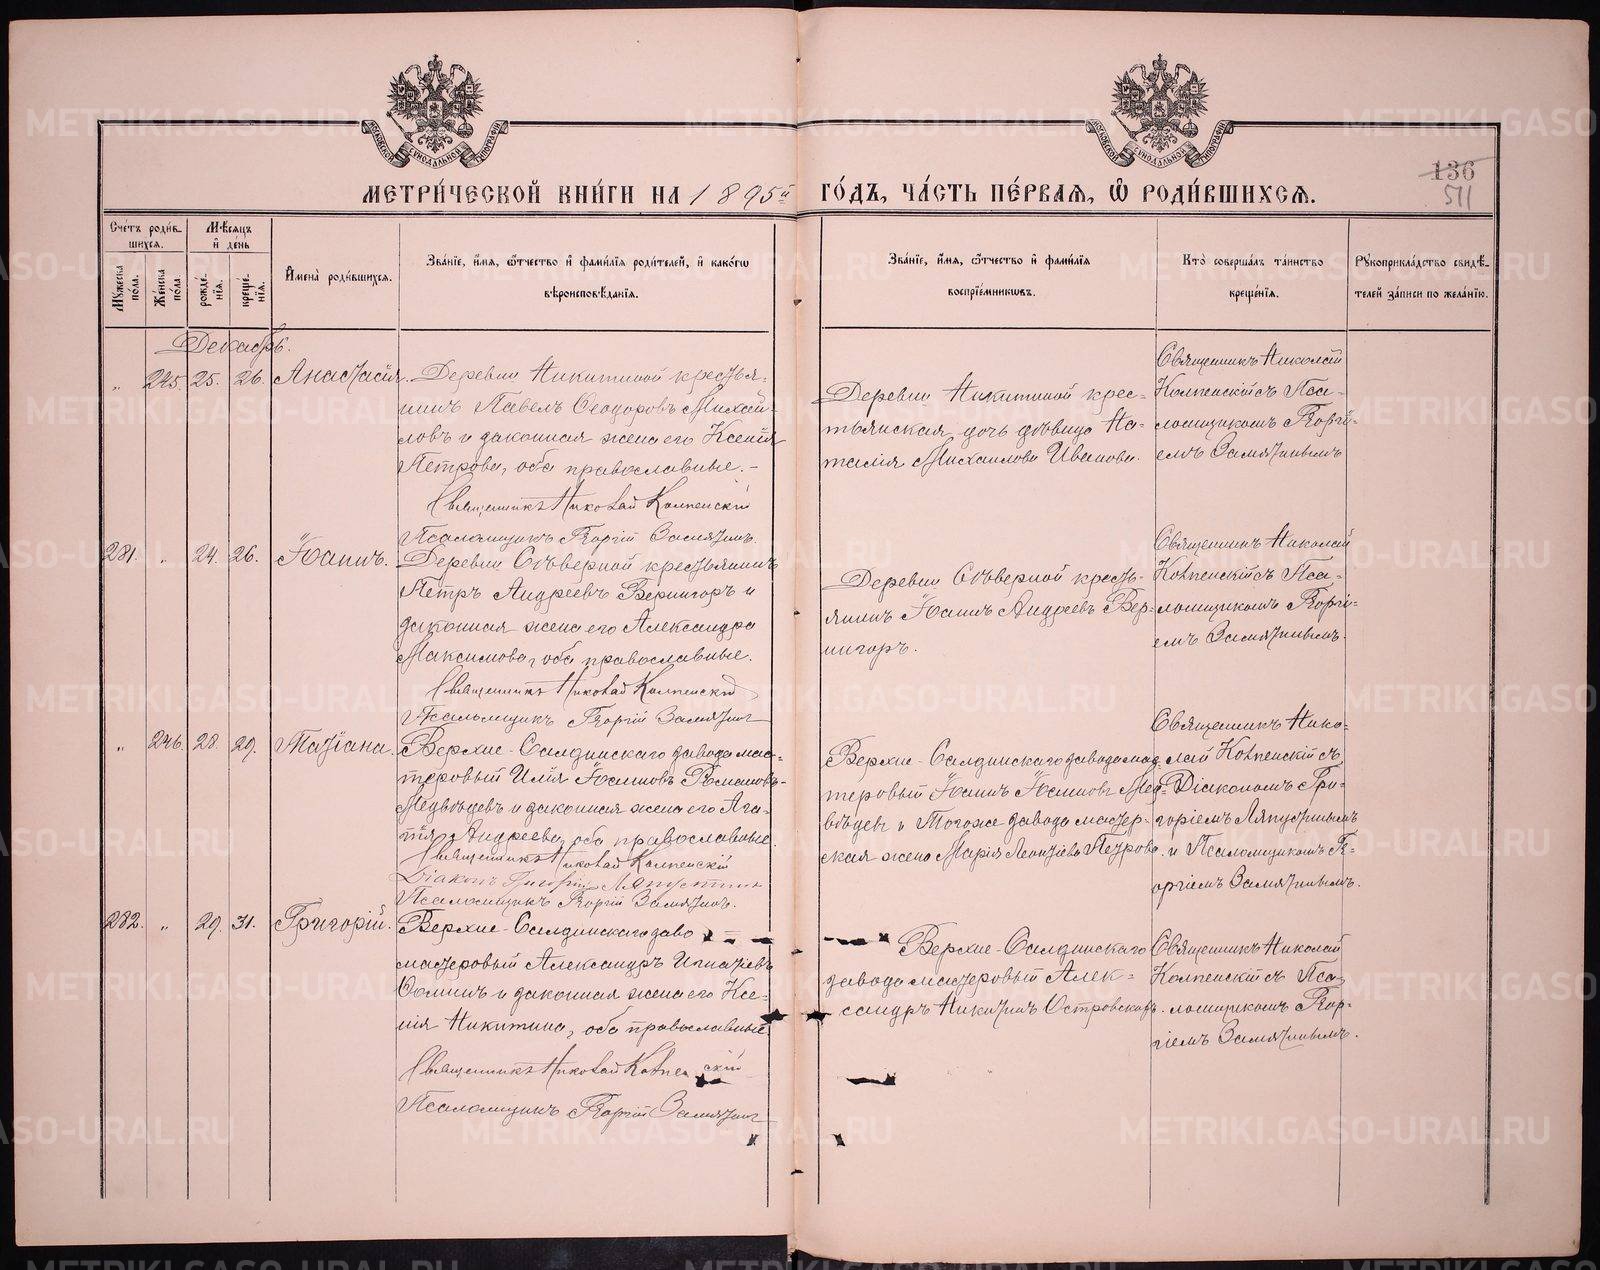 МЕТРИ́ЧЕСКОЙ КНИ́ГИ НА 1895й ГО́ДЪ, ЧА́СТЬ ПЕ́РВАѦ, Ѽ РОДИ́ВШИХСѦ.
136
511
Сче́тъ роди́в-
шихсѧ.
Мѣ́сѧцъ
и҆ де́нь
Мꙋ́жеска по́ла.
Же́нска по́ла.
рожде́-
нїѧ.
креще́-
нїѧ.
И҆мена̀ роди́вшихсѧ.
Зва́нїе, и҆́мѧ, ѻ҆́тчество и҆ фами́лїѧ роди́телей, и҆ како́гѡ
вѣроисповѣ́данїѧ.
Зва́нїе, и҆́мѧ, ѻ҆́тчество и҆ фами́лїѧ
воспрїе́мникѡвъ.
Кто̀ соверша́лъ та́инство
креще́нїѧ.
Рꙋкоприкла́дство свидѣ́-
телей за́писи по жела́нїю.
Декабрь.
„ 245. 25. 26. Анастасія.
Деревни Никитиной крестья-
нинъ Павелъ Ѳеодоровъ Михай-
ловъ и законная жена его Ксенія
Петрова, оба православные. -
Священникъ Николай Колпенскій
Псаломщикъ Георгій Замятинъ.
Деревни Никитиной крес-
тьянская дочь дѣвица На-
талія Михаилова Иванова.
Священникъ Николай
Колпенскій съ Пса-
ломщикомъ Георгі-
емъ Замятинымъ
281. „ 24. 26. Іоаннъ.
Деревни Сѣверной крестьянинъ
Петръ Андреевъ Вернигоръ и
законная жена его Александра
Максимова, оба православные.
Священникъ Николай Колпенскій
Псаломщикъ Георгій Замятинъ
Деревни Сѣверной кресть-
янинъ Іоаннъ Андреевъ Вер-
нигоръ.
Священникъ Николай
Колпенскій съ Пса-
ломщикомъ Георгі-
емъ Замятинымъ.
„ 246. 28. 29. Татіана.
Верхне-Салдинскаго завода мас-
теровый Илія Іоанновъ Романовъ-
Медвѣдевъ и законная жена его Ага-
фія Андреева, оба православные.
Священникъ Николай Колпенскій
Діаконъ Григорій Ляпустинъ
Псаломщикъ Георгій Замятинъ.
Верхне-Салдинскаго завода мас-
теровый Іоаннъ Іоанновъ Мед-
вѣдевъ и Тогоже завода мастер-
ская жена Марія Леонтіева Петрова.
Священникъ Нико-
лай Колпенскій съ
Діакономъ Гри-
горіемъ Ляпустинымъ
и Псаломщикомъ Ге-
оргіемъ Замятинымъ.
282. „ 29. 31. Григорій.
Верхне-Салдинскаго заво
мастеровый Александръ Игнатіевъ
Ѳоминъ и законная жена его Ксе-
нія Никитина, оба православные
Священникъ Николай Колпенскій
Псаломщикъ Георгій Замятинъ
Верхне-Салдинскаго
завода мастеровый Алек-
сандръ Никитинъ Островскій.
Священникъ Николай
Колпенскій съ Пса-
ломщикомъ Геор-
гіемъ Замятинымъ.
METRIKI.GASO-URAL.RU